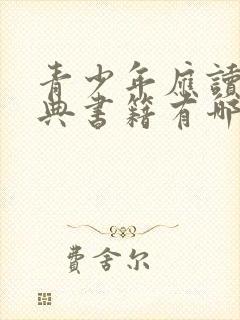 青少年應讀
典書籍有哪
費舍尔